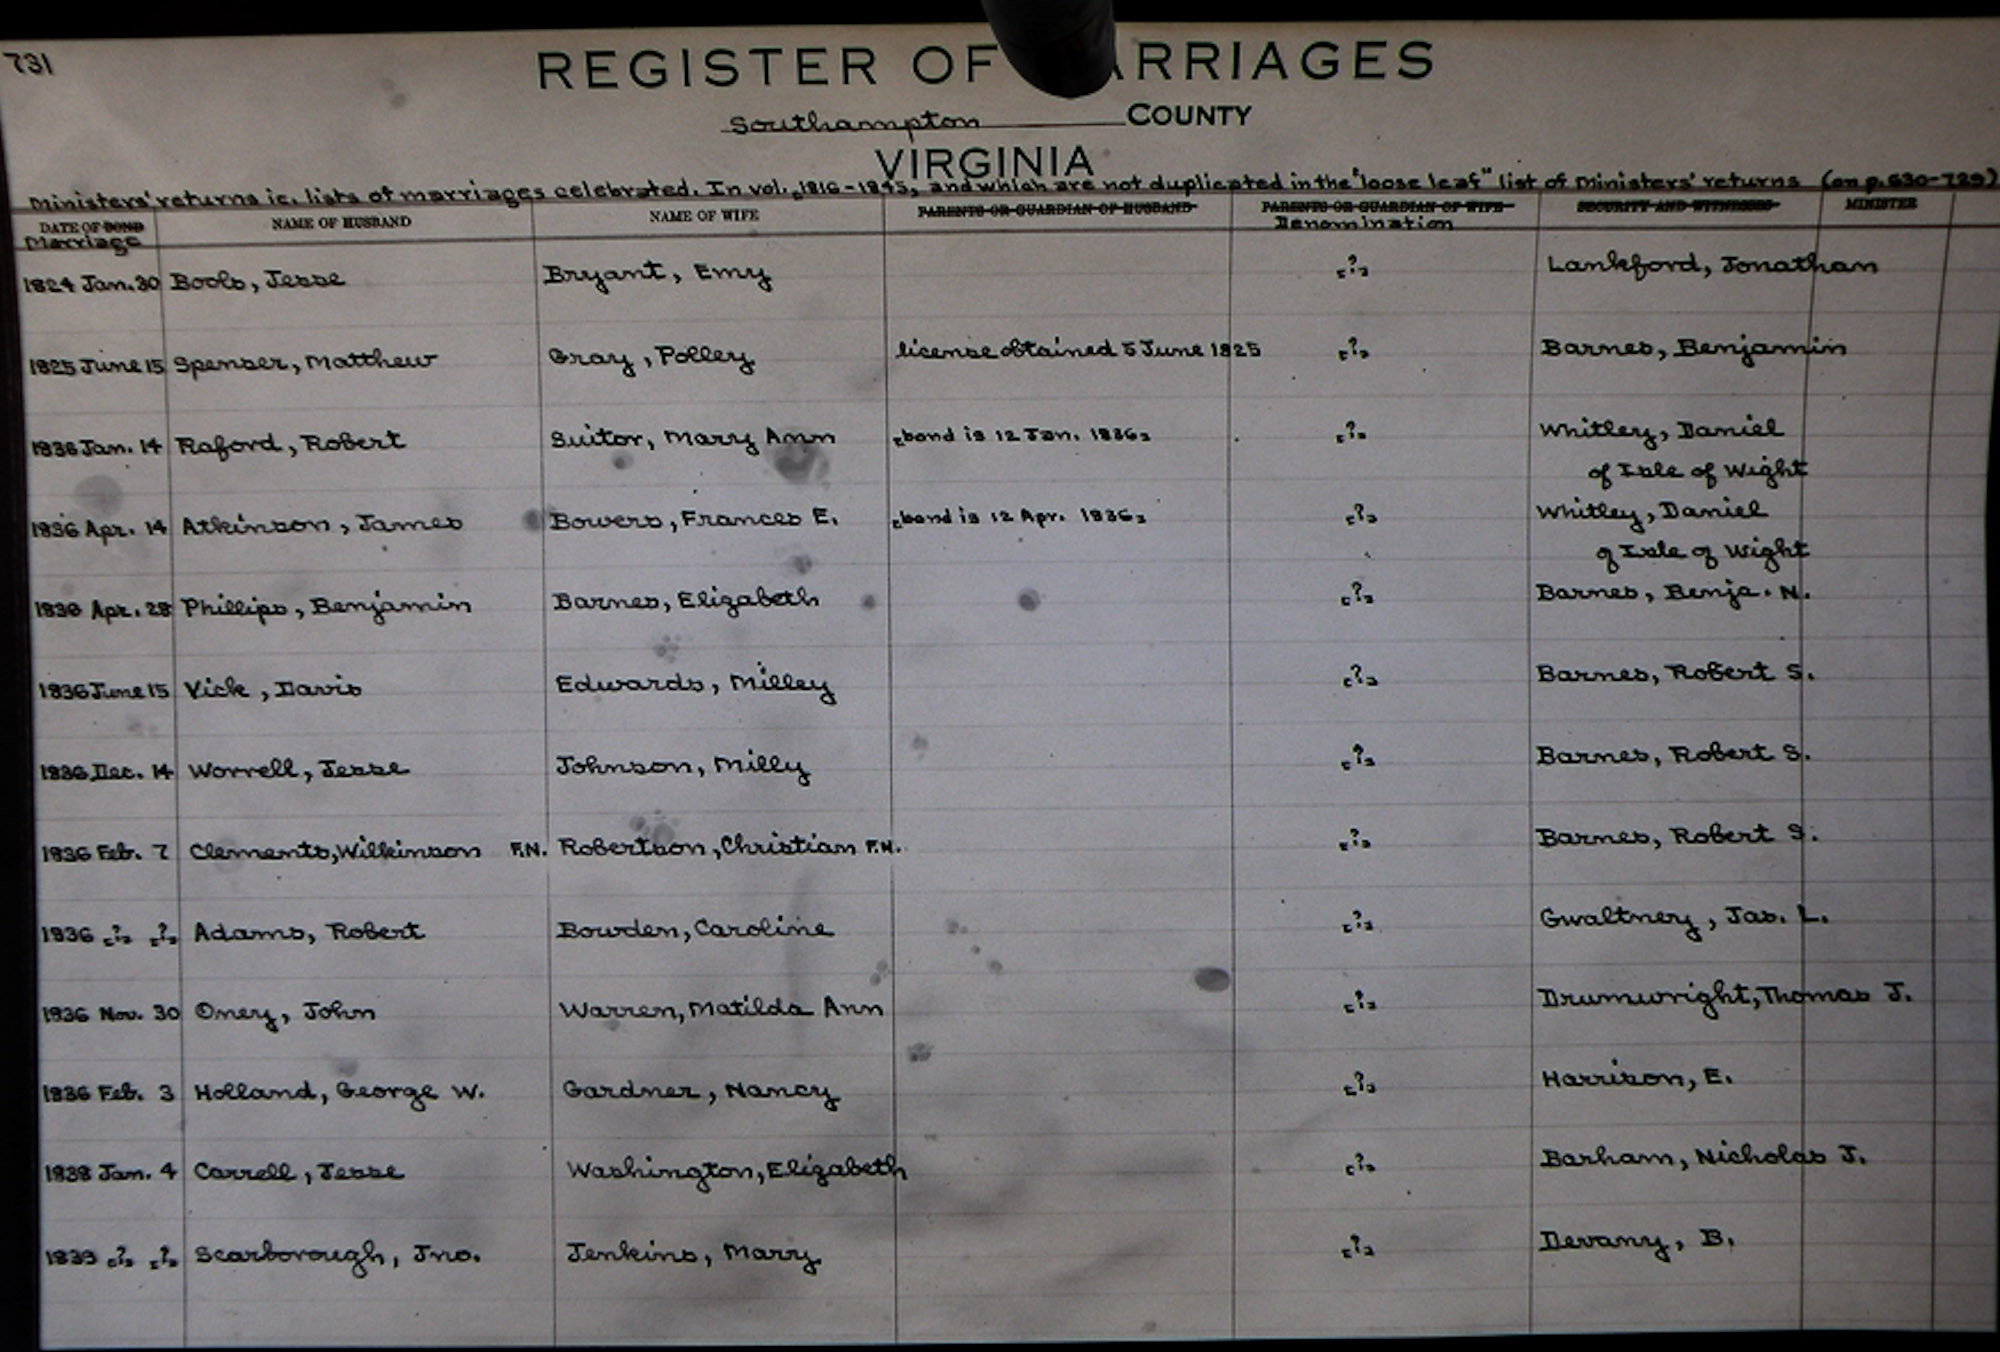 731
REGISTER OF ARRIAGES
Southampton COUNTY
VIRGINIA
Ministers' returns ie. lists of marriages celebrated. In vol. [1816-1845], and which are not duplicated in the "loose leaf" list of Ministers' returns (on p. 630-729)
DATE OF BOND NAME OF HUSBAND NAME OF WIFE PARENTS OR GUARDIAN OF HUSBAND PARENTS OR GUARDIAN OF WIFE SECURITY AND WITNESSES MINISTER
Marriage Denomination
1824 Jan. 30 Bools, Jesse Bryant, Emy [?] Lankford, Jonathan
1825 June 15 Spenser, Matthew Gray, Polley license obtained 5 June 1825 [?] Barnes, Benjamin
1836 Jan. 14 Raford, Robert Suitor, Mary Ann [bond is 12 Jan. 1836] [?] Whitley, Daniel
of Isle of Wight
1836 Apr. 14 Atkinson, James Bowers, Frances E. [bond is 12 Apr. 1836] [?] Whitley, Daniel
of Isle of Wight
Apr. 28 Phillips, Benjamin Barnes, Elizabeth [?] Barnes, Benja. N.
1836 June 15 Vick, Davis Edwards, Milley [?] Barnes, Robert S.
1836 Dec. 14 Worrell, Jesse Johnson, Milly [?] Barnes, Robert S.
1836 Feb. 7 Clements, Wilkinson F.N. Robertson, Christian F.N. [?] Barnes, Robert S.
1836 [?] [?] Adams, Robert Bowden, Caroline [?] Gwaltney, Jas. L.
1836 Nov. 30 Oney, John Warren, Matilda Ann [?] Drumwright, Thomas J.
1836 Feb. 3 Holland, George W. Gardner, Nancy [?] Harrison, E.
1838 Jan. 4 Carrell, Jesse Washington, Elizabeth [?] Barham, Nicholas J.
1839 [?] [?] Scarborough, Jno. Jenkins, Mary [?] Devany, B.